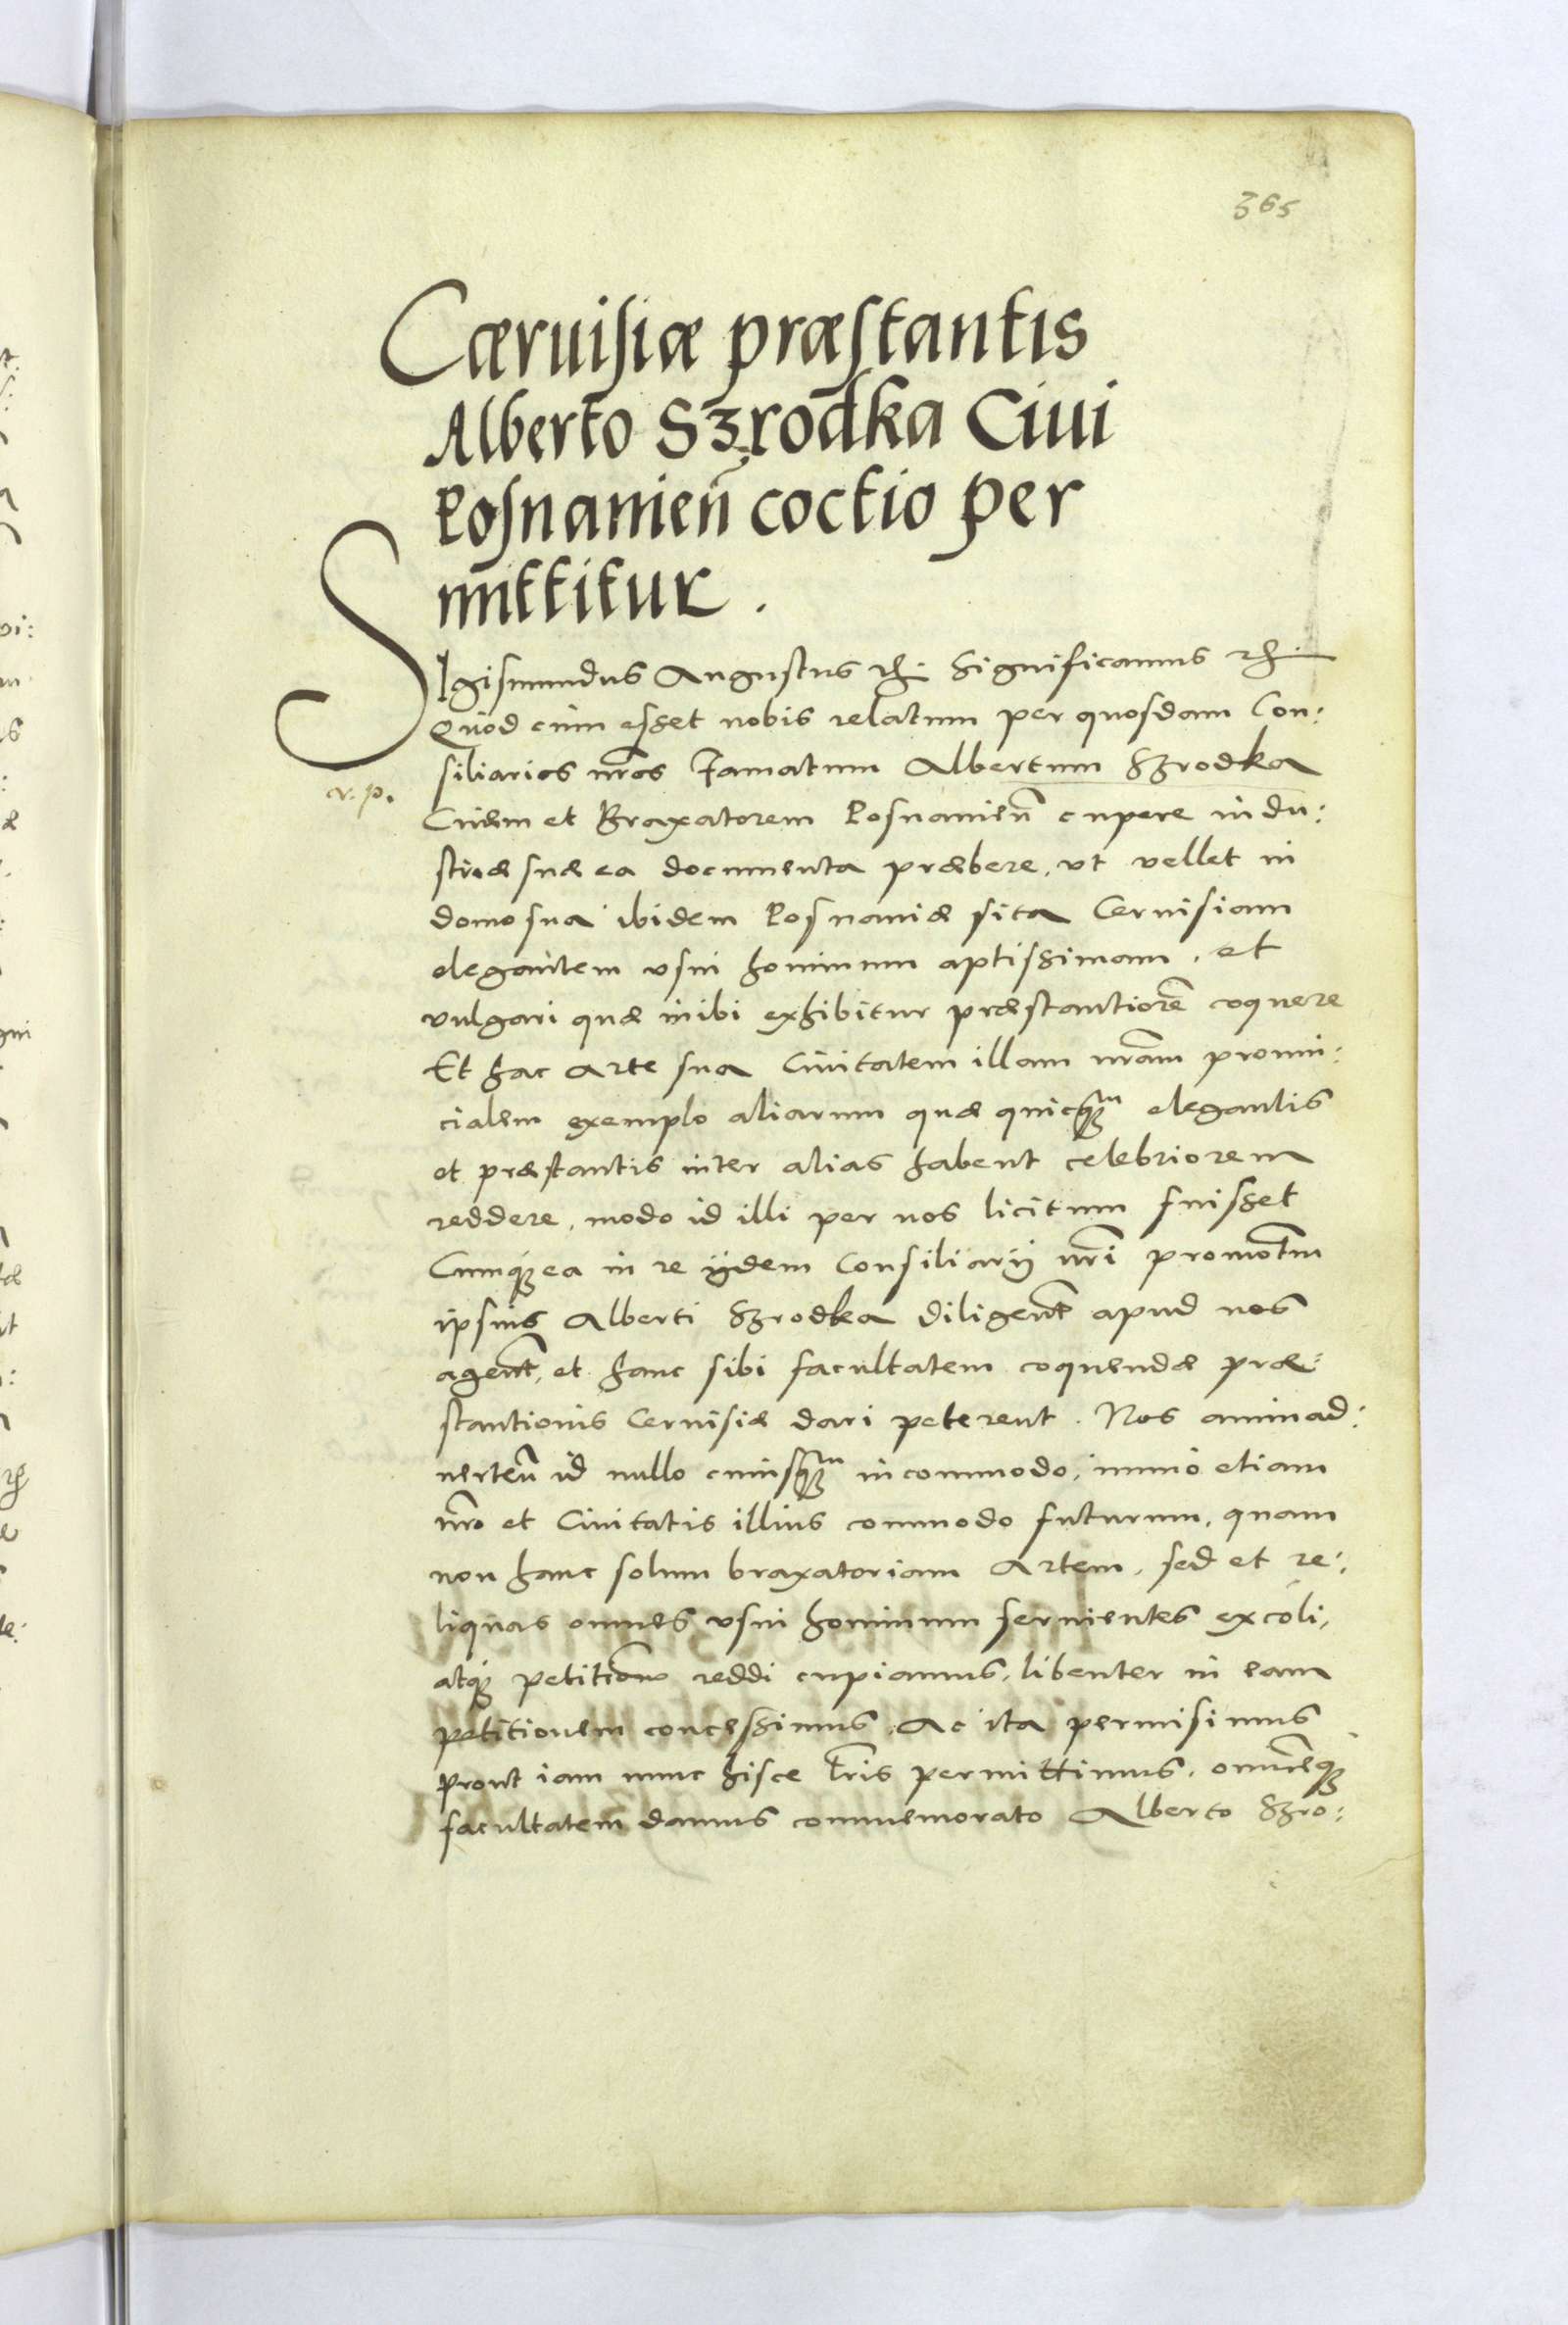 365
Cæruisiæ præstantis
Alberto Szrodka Ciui
Posnanieñ coctio per
mittitur.
Sigismundus Augustus etc. Significamus etc.
Quod cum esset nobis relatum per quosdam Con:
siliarios nr̃os Famatum Albertum Szrodka
Ciuem et Braxatorem Posnanieñ cupere indu:
striæ suæ ea documenta præbere, vt vellet in
domo sua ibidem Posnaniæ sita Ceruisiam
elegantem vsui hominum aptissimam, et
vulgari quæ inibi exhibitur præstantiorẽ coquere
Et hac Arte sua Ciuitatem illam nr̃am prouin:
cialem exemplo aliarum quæ quicq̃ elegantis
et præstantis inter alias habent celebriorem
reddere, modo id illi per nos licitum fuisset
Cumq; ea in re ijdem Consiliarij nr̃i promot̃m
ipsius Alberti Szrodka diligent̃ apud nos
agent̃, et hanc sibi facultatem coquendæ præ:
stantioris Ceruisiæ dari peterent. Nos animad:
uerteñ id nullo cuiusq̃ incommodo, immo etiam
nr̃o et Ciuitatis illius commodo futurum, quam
non hanc solum braxatoriam Artem, sed et re:
liquas omnes vsui hominum seruientes excoli,
atq; petitioñ reddi cupiamus, libenter in eam
petitionem concessimus, Ac ita permisimus
Prout iam nunc hisce l̃ris permittimus, omnẽq;
facultatem damus commemorato Alberto Szro: